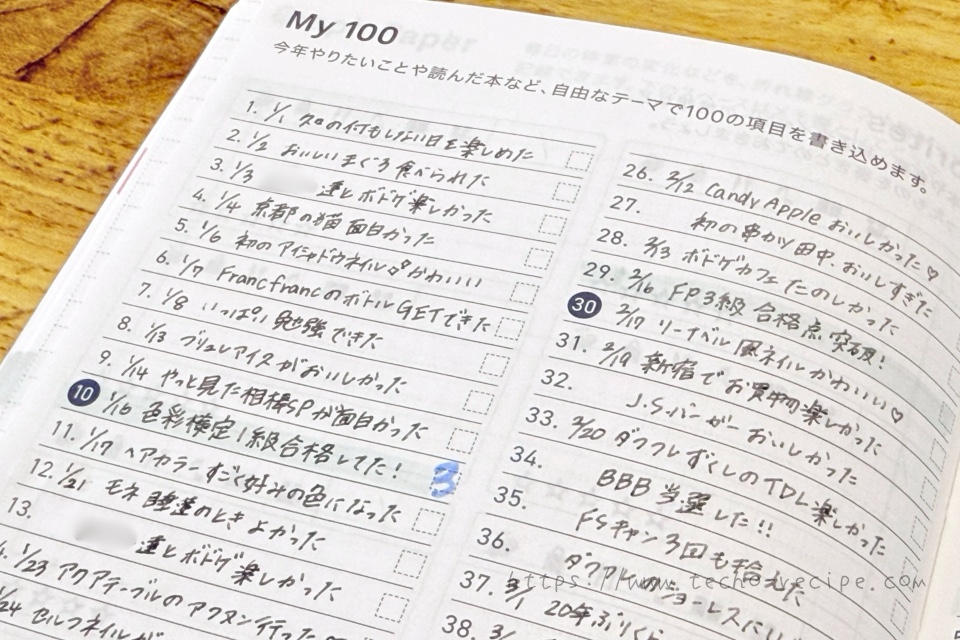 My 100
今年やりたいことや読んだ本など、自由なテーマで100の項目を書き込めます。
1. 1/1 久々の何もしない日を楽しめた
2. 1/2 おいしいまぐろ食べられた
3. 1/3 達とボドゲ楽しかった
4. 1/4 京都の猫面白かった
5. 1/6 初のアイシャドウネイル かわいい
6. 1/7 FrancfrancのボトルGETできた
7. 1/8 いっぱい勉強できた
8. 1/13 ブリュレアイスがおいしかった
9. 1/14 やっと見た相棒SPが面白かった
10 1/16 色彩検定1級合格してた!
11. 1/17 ヘアカラーすごく好みの色になった
12. 1/21 モネ 睡蓮のとき よかった
13. 達とボドゲ楽しかった
1/23 アクアテーブルのアフヌン行った
1/24 セルフネイルが
26. 2/12 Candy Apple おいしかった♡
27. 初の串カツ田中、おいしすぎた
28. 2/13 ボドゲカフェたのしかった
29. 2/16 FP3級 合格点突破!
30 2/17 リーナベル風ネイルかわいい♡
31. 2/19 新宿でお買物楽しかった
32. J.S.バーガーおいしかった
33. 2/20 ダフフレずくしのTDL楽しかった
34. BBB当選した!!
35. FSキャン3回も拾えた
36. ダフフレの
37. 3/1 20年ぶりくら
38. 3/
https://www.techo-recipe.com